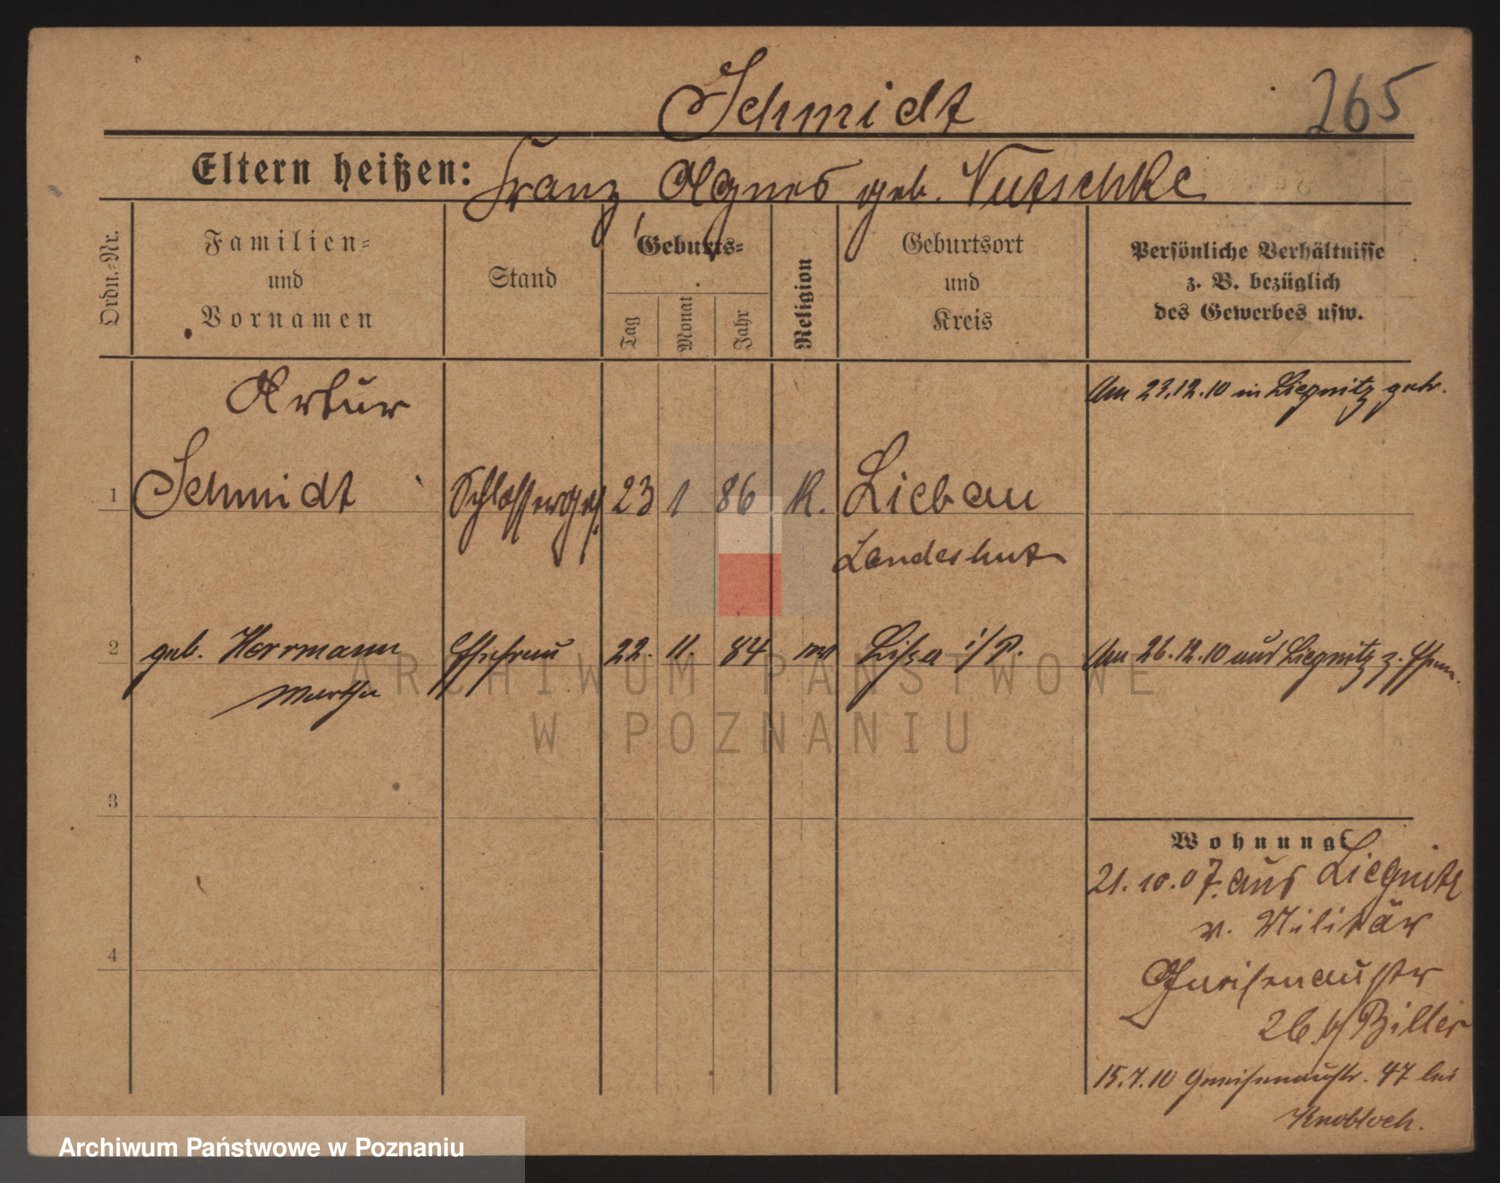 Schmidt
265
Eltern heißen: Franz, Agnes geb. Nutschke
Ordn.-Nr.
Familien-
und
Vornamen
Stand
Geburts-
Tag
Monat
Jahr
Religion
Geburtsort
und
Kreis
Persönliche Verhältnisse
z. B. bezüglich
des Gewerbes usw.
Artur
Am 23.12.10 in Liegnitz geh.
1 Schmidt Schlosserges. 23 1 86 K. Liebau
Landeshut
2 geb. Herrmann Ehefrau 22. 11. 84 Lissa i/P. Am 26.12.10 aus Liegnitz z. Ehem.
Martha
ARCHIWUM PAŃSTWOWE
W POZNANIU
3
Wohnung
21.10.07. aus Liegnitz
v. Militär
4
Gneisenaustr
26 b/ Biller
15.7.10 Gneisenaustr. 47 bei
Knobloch.
Archiwum Państwowe w Poznaniu